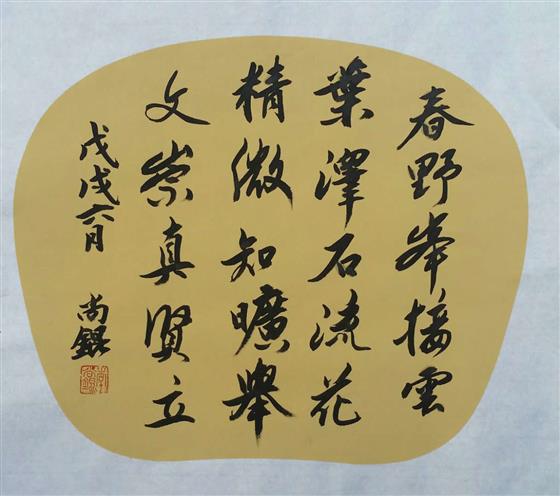 春野峯接雲
葉澤石流花
精微知曠舉
文崇真賢立
戊戌六月
尚